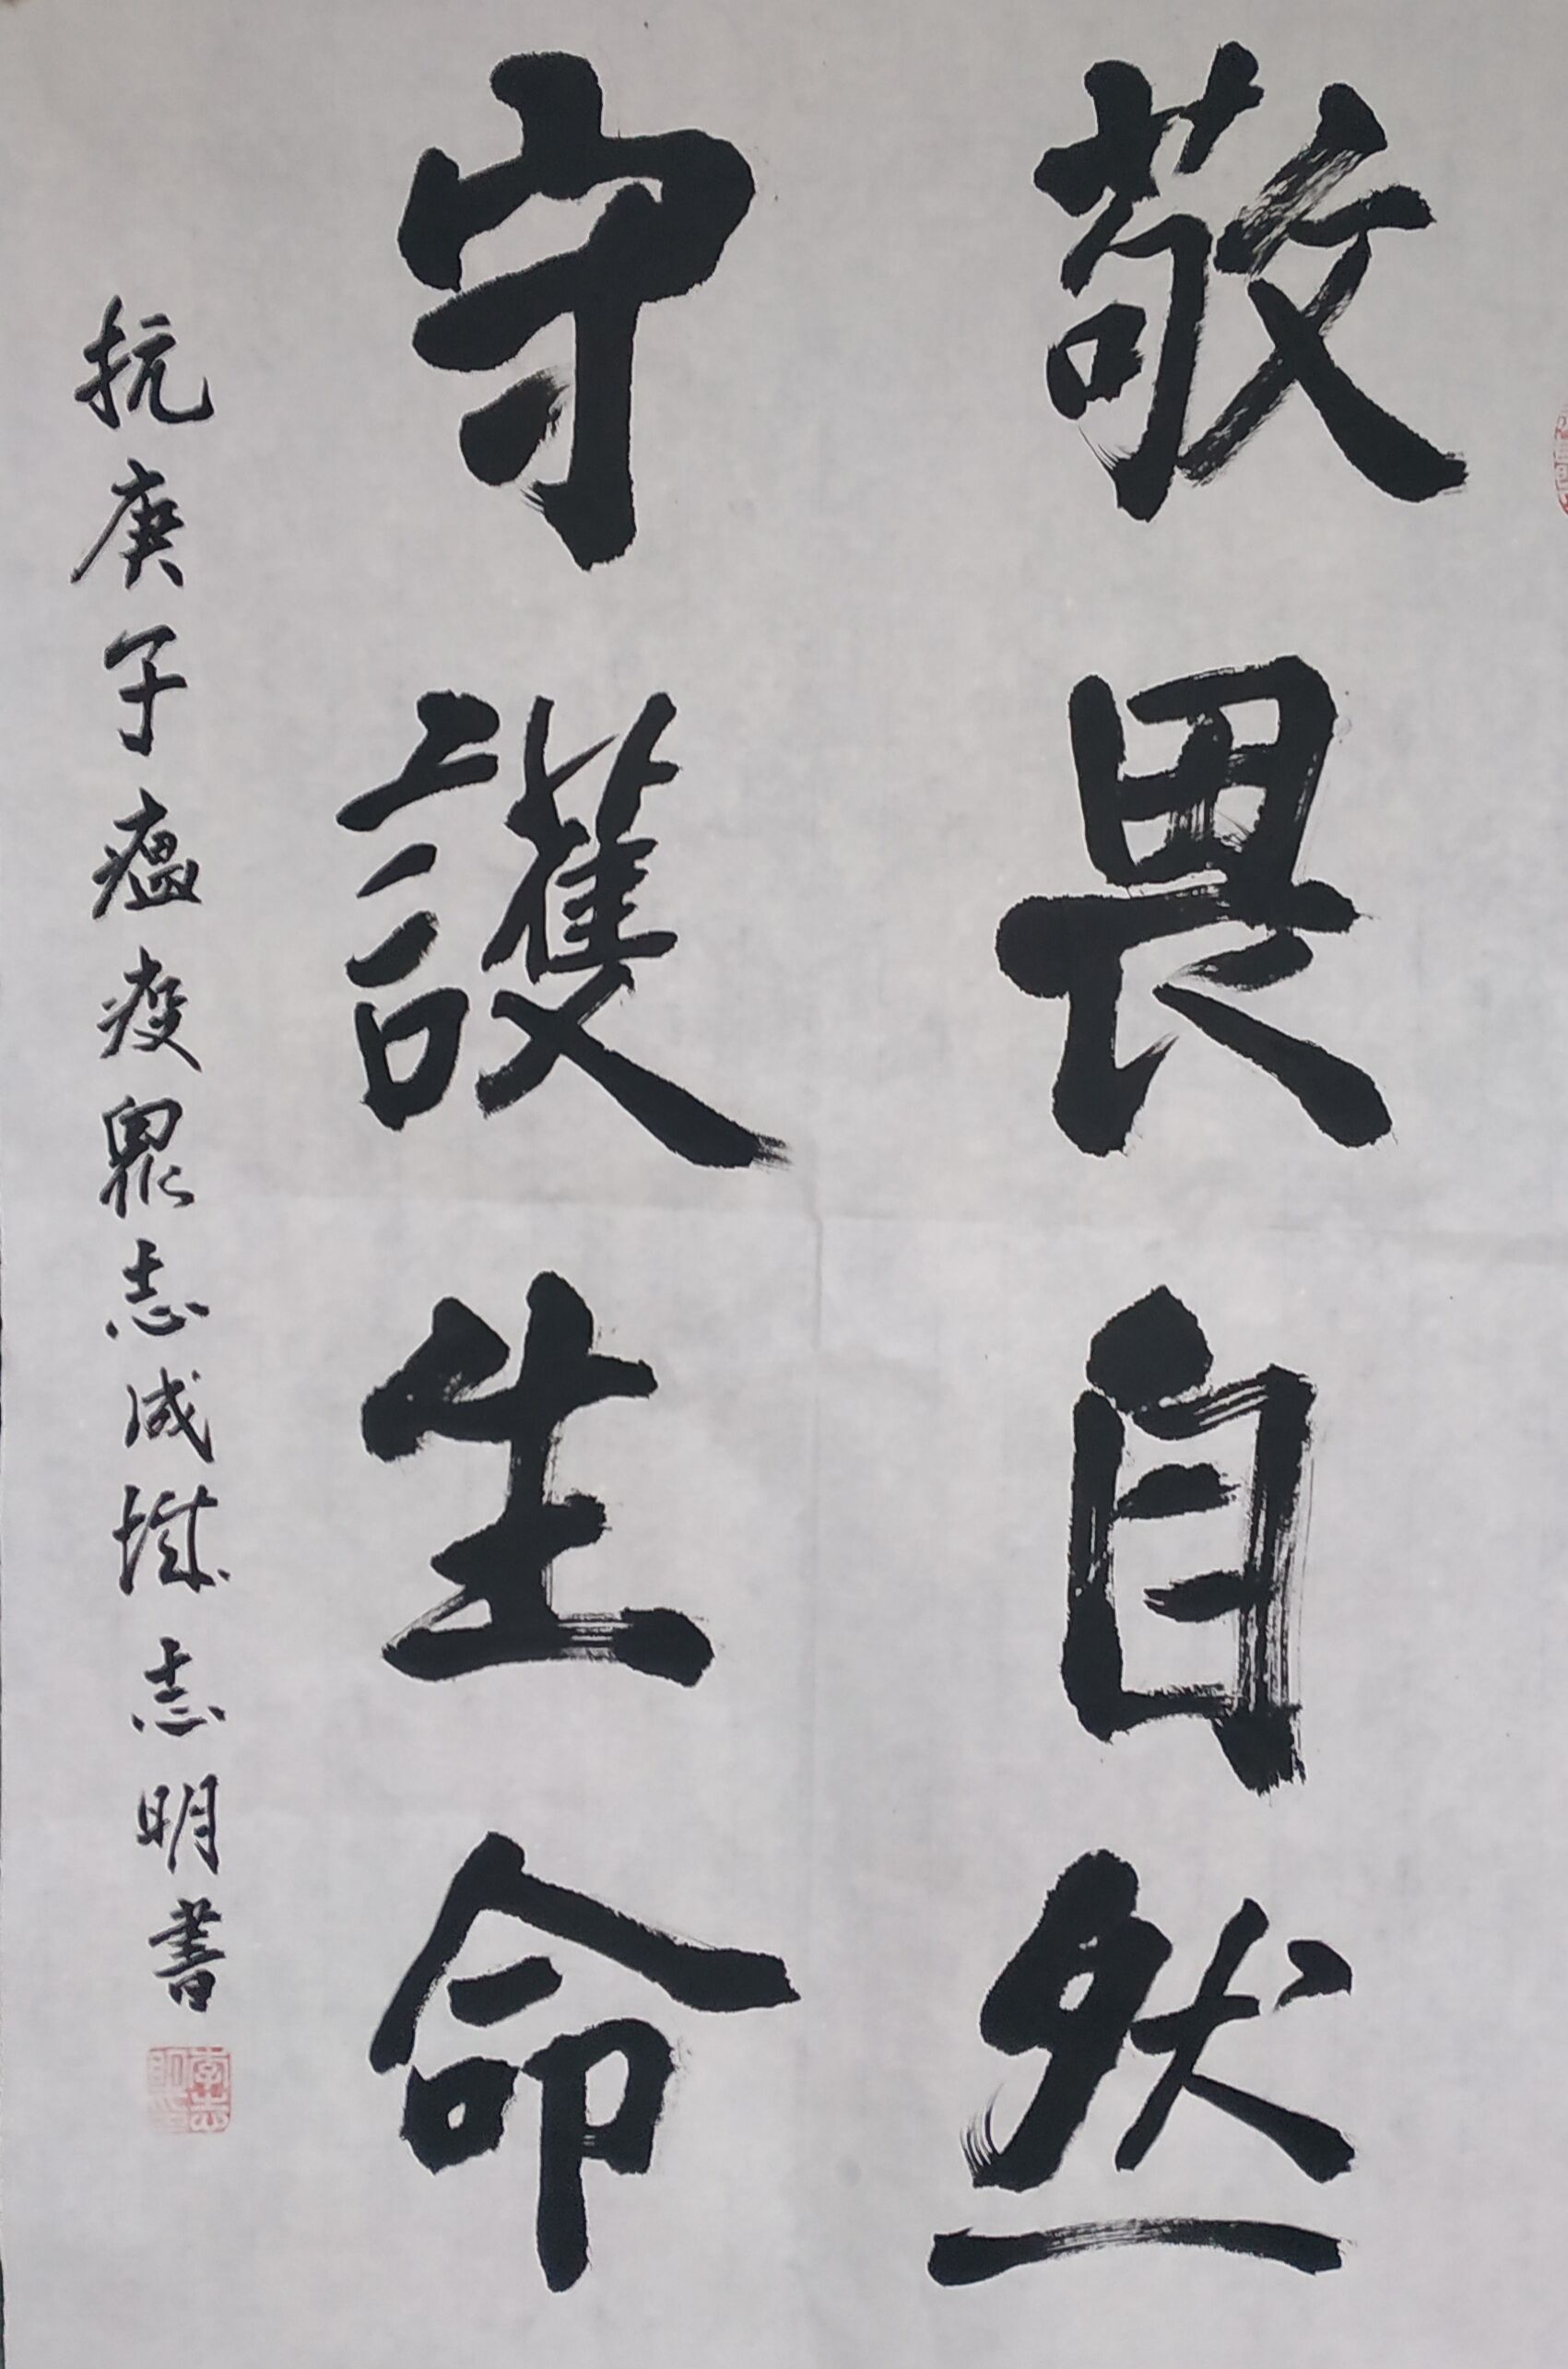 敬畏自然
守護生命
抗庚子瘟疫眾志成城志明書